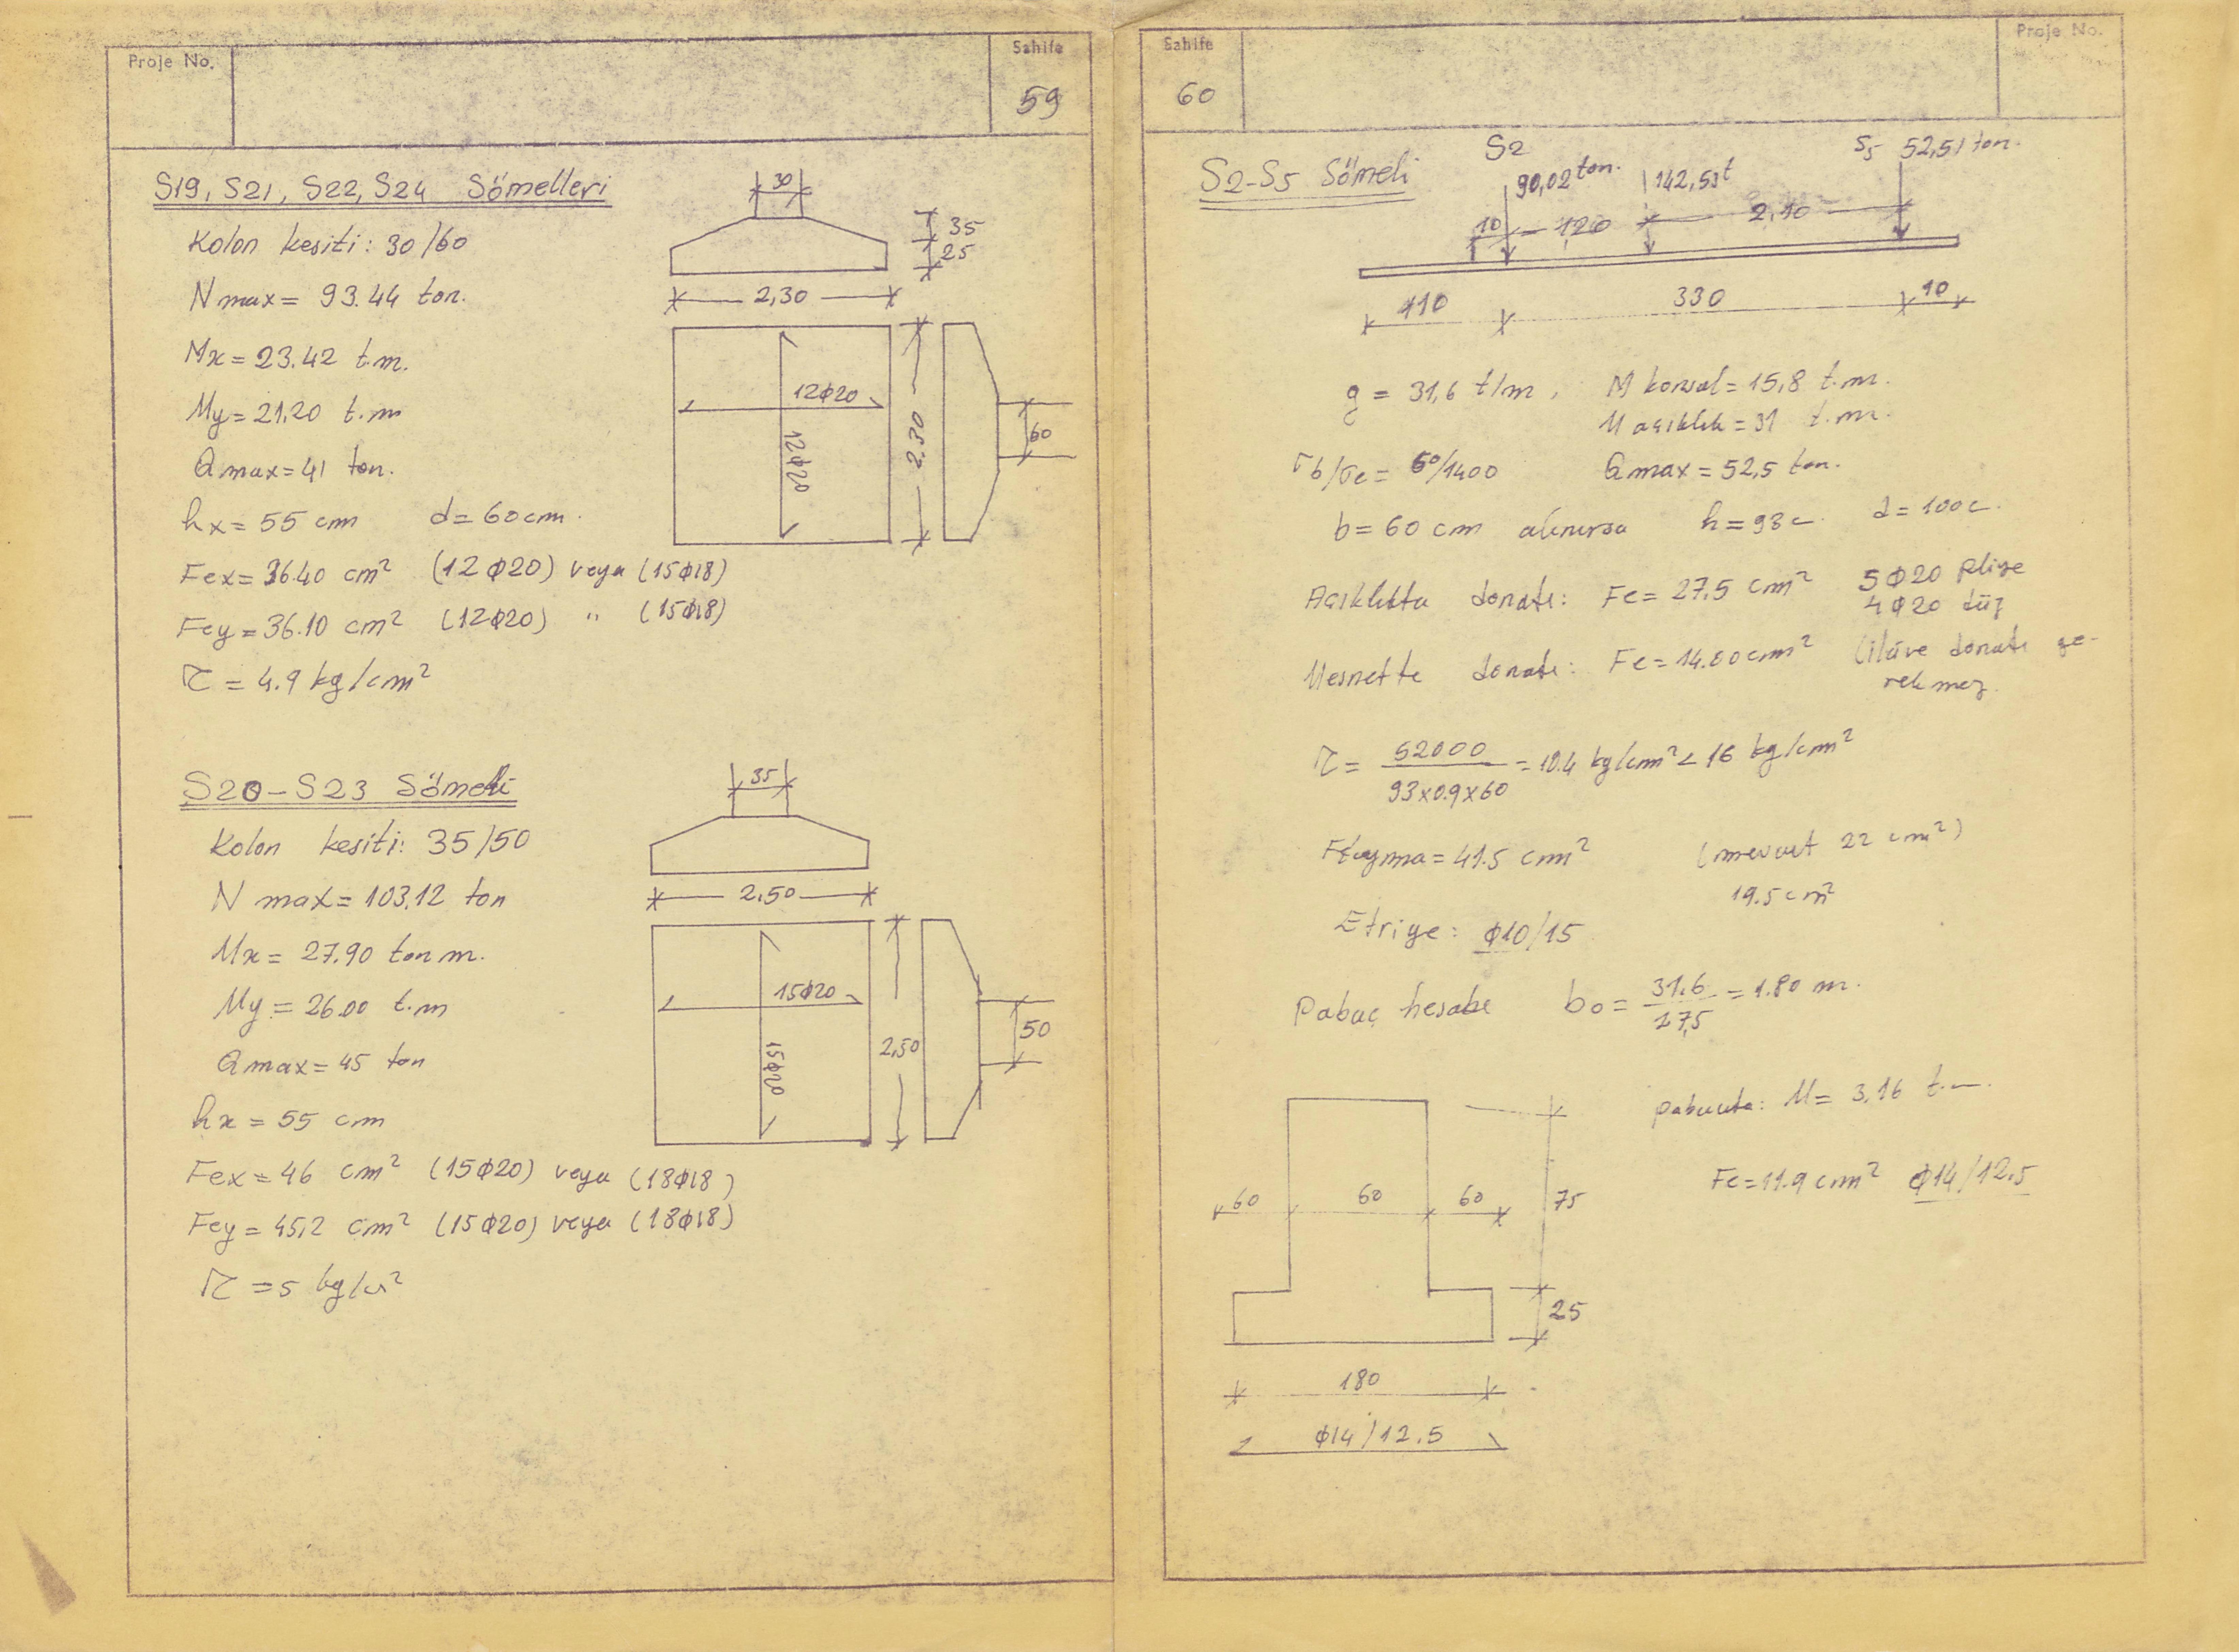 Proje No.
Sahife
59
S19, S21, S22, S24 Sömelleri
Kolon kesiti: 30/60
N max = 93.44 ton.
Mx = 23.42 t.m.
My = 21.20 t.m
Q max = 41 ton.
hx = 55 cm d = 60 cm.
Fex = 36.40 cm² (12ϕ20) veya (15ϕ18)
Fey = 36.10 cm² (12ϕ20) " (15ϕ18)
τ = 4.9 kg/cm²
30
35
25
2,30
12ϕ20
12ϕ20
2.30
60
S20-S23 Sömeli
Kolon kesiti: 35/50
N max = 103.12 ton
Mx = 27.90 ton m.
My = 26.00 t.m
Q max = 45 ton
hx = 55 cm
Fex = 46 cm² (15ϕ20) veya (18ϕ18)
Fey = 45.2 cm² (15ϕ20) veya (18ϕ18)
τ = 5 kg/cm²
35
2,50
15ϕ20
15ϕ20
2,50
50
Sahife
60
Proje No.
S2-S5 Sömeli
S2
90,02 ton.
142,53t
S5 52,51 ton.
10
1,20
2,10
110
330
10
q = 31,6 t/m, M konsol = 15,8 t.m.
M açıklık = 31 t.m.
σb/σe = 60/1400 Q max = 52,5 ton.
b = 60 cm alınırsa h = 93 c. d = 100 c.
Açıklıkta donatı: Fe = 27.5 cm² 5ϕ20 pliye
4ϕ20 düz
Mesnette donatı: Fe = 14.00 cm² (ilâve donatı ge-
rekmez.
τ = 52000 / 93x0.9x60 = 10.4 kg/cm² < 16 kg/cm²
Fkayma = 41.5 cm² (mevcut 22 cm²)
19.5 cm²
Etriye: ϕ10/15
Pabuç hesabı b0 = 31.6 / 17,5 = 1.80 m.
pabuçta: M = 3.16 t.m.
Fe = 11.9 cm² ϕ14/12.5
60
60
60
75
25
180
ϕ14/12.5